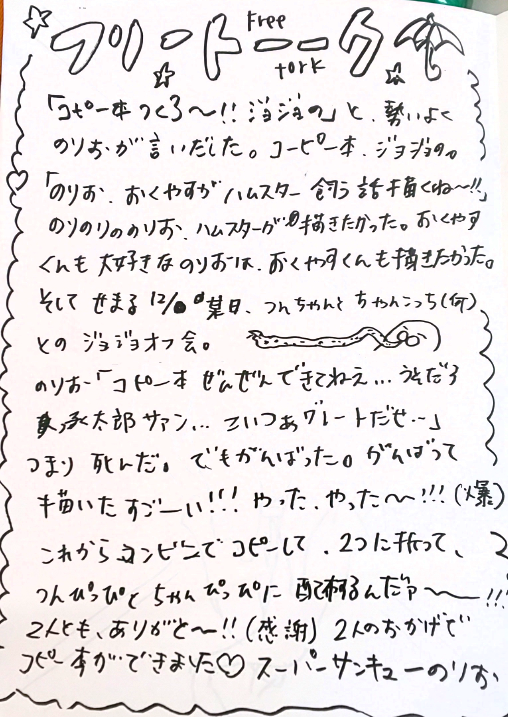 フリートーーク
Free
tork
「コピー本つくろ〜!! ジョジョの」と、勢いよく
のりおが言いだした。コーピー本、ジョジョの。
「のりお、おくやすがハムスター飼う話描くね〜!!」
のりのりののりお、ハムスターが描きたかった。おくやす
くんも大好きなのりおは、おくやすくんも描きたかった。
そして せまる 12/ 葉日、つんちゃんと ちゃんこっち(何)
との ジョジョオフ会。
のりお「コピー本 ぜんぜんできてねえ… うそだろ
承太郎サァン… こいつぁグレートだぜ…」
つまり 死んだ。でもがんばった。がんばって
描いた すごーい!!! やった、やった〜!!! (爆)
これからコンビニでコピーして、2つに折って、
つんぴっぴと ちゃんぴっぴに 配布するんだァ〜!!!
2人とも、ありがと〜!! (感謝) 2人のおかげで
コピー本ができました♡ スーパーサンキューのりお